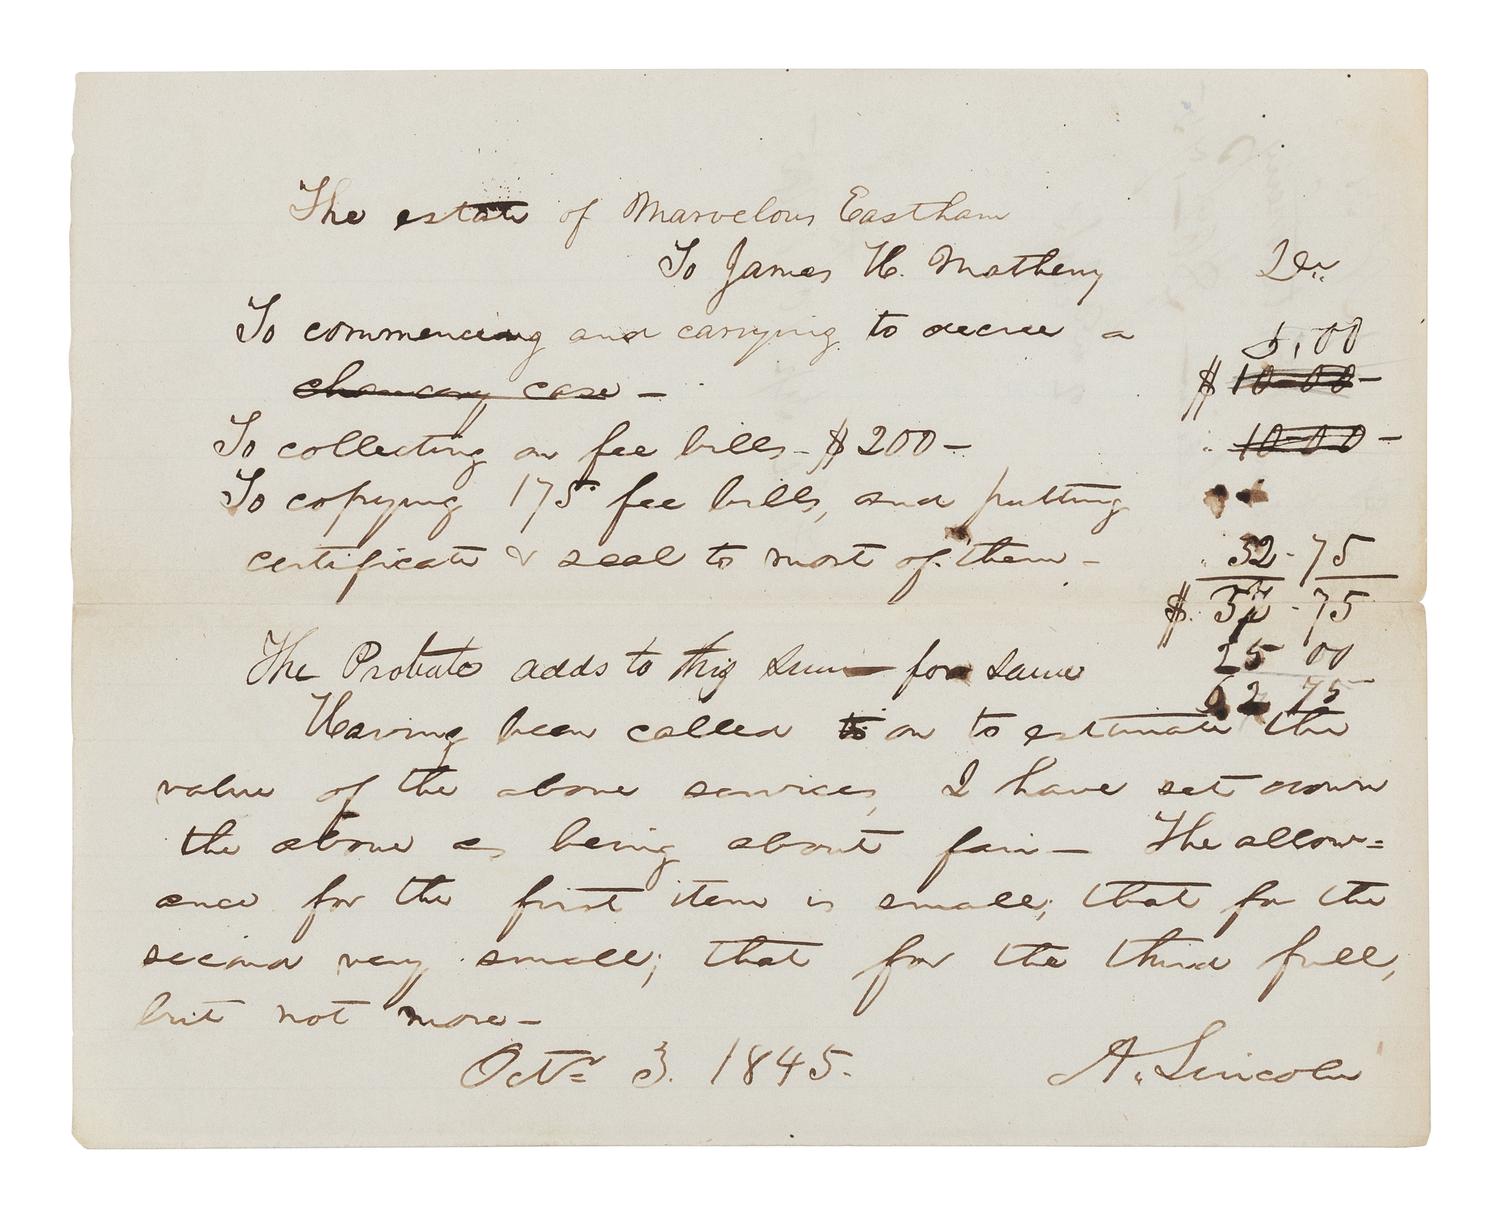 The estate of Marvelous Eastham
To James H. Matheny Dr.
To commencing and carrying to decree a 5,00
chancery case – $ 10-00 –
To collecting on fee bills – $200 – " 10-00 –
To copying 175 fee bills, and putting
certificate & seal to most of them – " 32-75
$. 37-75
The Probate adds to this sum for same 25 00
62 75
Having been called to on to estimate the
value of the above services, I have set down
the above as being about fair – The allow=
ance for the first item is small; that for the
second very small; that for the third full,
but not more –
Octr 3. 1845. A. Lincoln